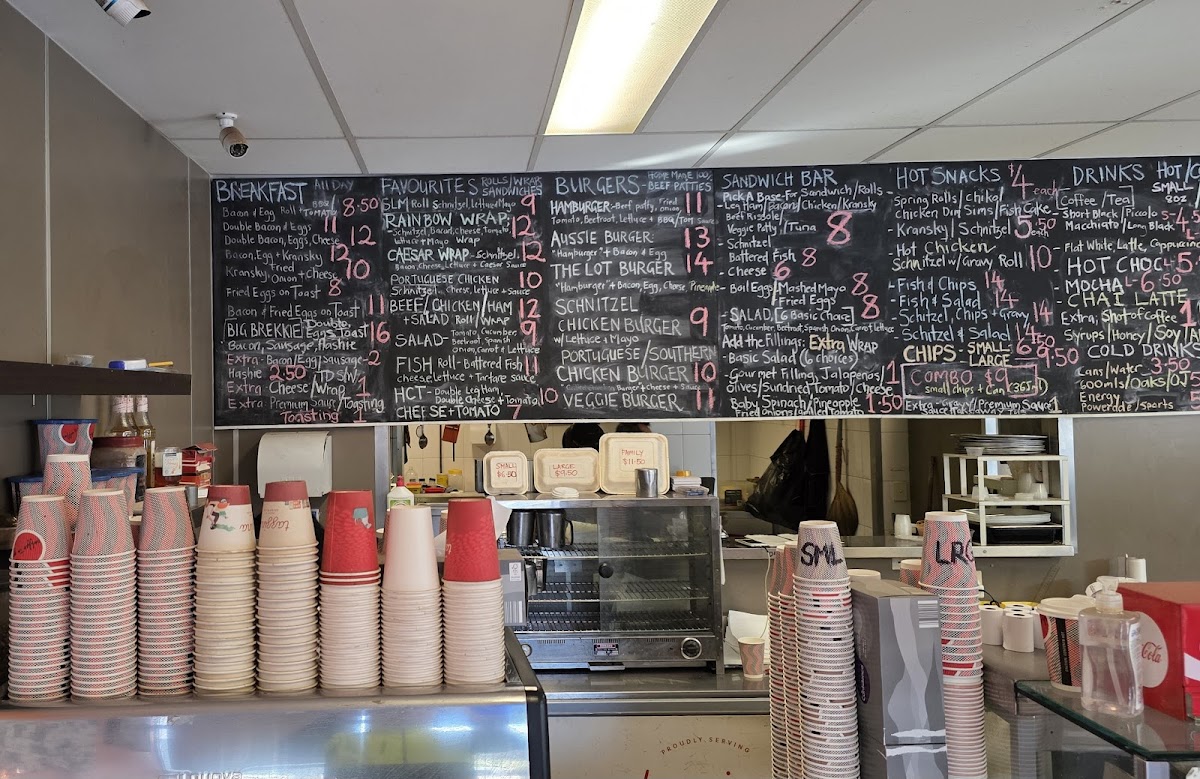 BREAKFAST ALL DAY
Bacon & Egg Roll BBQ/TOMATO 8.50
Double Bacon & Eggs 11
Double Bacon, Eggs, Cheese 12
Bacon, Egg + Kransky 12
Kransky, Fried Onion + Cheese 10
Fried Eggs on Toast 8
Bacon & Fried Eggs on Toast 11
BIG BREKKIE Double Eggs Toast
Bacon, Sausage, Hashie 16
Extra - Bacon/Egg/Sausage - 2
Hashie 2.50
Extra Cheese/Wrap 1
Extra Premium Sauce/Toasting 1
Toasting 1
FAVOURITES ROLLS/WRAP SANDWICHES
SLM Roll Schnitzel, Lettuce, Mayo 9
RAINBOW WRAP 12
- Schnitzel, Bacon, Cheese, Tomato
Lettuce + Mayo Wrap
CAESAR WRAP - Schnitzel 12
Bacon, Cheese, Lettuce + Caesar Sauce
PORTUGUESE CHICKEN 10
Schnitzel, Cheese, Lettuce + Sauce
BEEF/CHICKEN/HAM 12
+ SALAD Roll/WRAP 9
SALAD - Tomato, Cucumber, Beetroot, Spanish Onion, Carrot & Lettuce 9
FISH Roll - Battered Fish 11
cheese Lettuce + Tartare sauce
HCT - Double Ham, Double Cheese + Tomato 10
CHEESE + TOMATO 7
BURGERS - HOME MADE 100% BEEF PATTIES
HAMBURGER - Beef patty, Fried Onion, 11
Tomato, Beetroot, Lettuce + BBQ/Tom Sauce
AUSSIE BURGER 13
"Hamburger" + Bacon & Egg
THE LOT BURGER 14
"Hamburger" + Bacon, Egg, Cheese, Pineapple
SCHNITZEL
CHICKEN BURGER 9
w/ Lettuce + Mayo
PORTUGUESE/SOUTHERN
CHICKEN BURGER 10
Burger + Cheese + Sauce
VEGGIE BURGER 11
SANDWICH BAR
Pick A Base - For Sandwich/Rolls
- Leg Ham/Bacon/Chicken/Kransky
Beef Rissole
Veggie Patty /Tuna 8
- Schnitzel
Battered Fish 8
- Cheese 6
- Boil Eggs/Mashed Mayo 8
/Fried Eggs 8
- SALAD, [6 Basic Choice] 8
Tomato, Cucumber, Beetroot, Spanish Onion, Carrot, Lettuce
Add the Fillings: Extra WRAP
- Basic Salad (6 choices)
- Gourmet Filling, Jalapenos 1
Olives/Sundried Tomato/Cheese
Baby Spinach/Pineapple 1.50
Fried Onions/
HOT SNACKS $4 each
- Spring Rolls/Chiko/
Chicken Dim Sims/Fish Cake
- Kransky/Schnitzel 5.50
- Hot Chicken
Schnitzel w/Gravy Roll 10
- Fish & Chips 14
- Fish & Salad 14
- Schitzel, Chips + Gravy 14
- Schitzel & Salad 14
CHIPS - SMALL 6.50
LARGE 9.50
COMBO $9
small chips + Can
Extra - Gravy/Premium Sauce 1
DRINKS HOT/
SMALL
8OZ
Coffee/Tea
- Short Black/Piccolo
Macchiato/Long Black
- Flat White, Latte, Cappuccino
- HOT CHOC
MOCHA - 6.50
- CHAI LATTE
Extra, Shot of Coffee 1
Syrups/Honey/Soy/
COLD DRINKS
Cans/Water 3.50
600mls/Oaks/OJ
Energy
Powerade/sports
SMALL
$6.50
LARGE
$9.50
FAMILY
$11.50
SML
LRG
PROUDLY SERVING
Coca-Cola